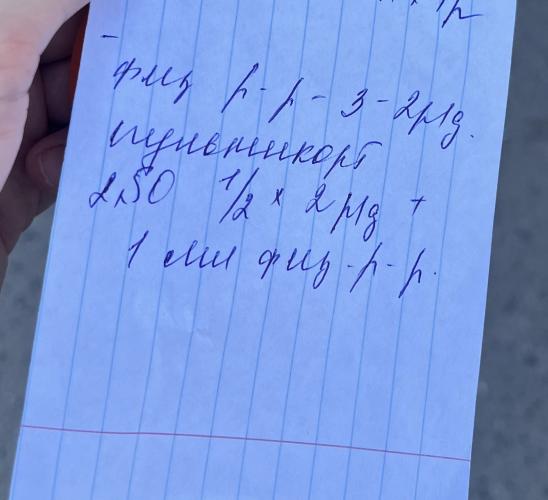 х 1р
-
физ р-р - 3 - 2р/д.
пульмикорт
250 1/2 х 2р/д +
1 мл физ-р-р.